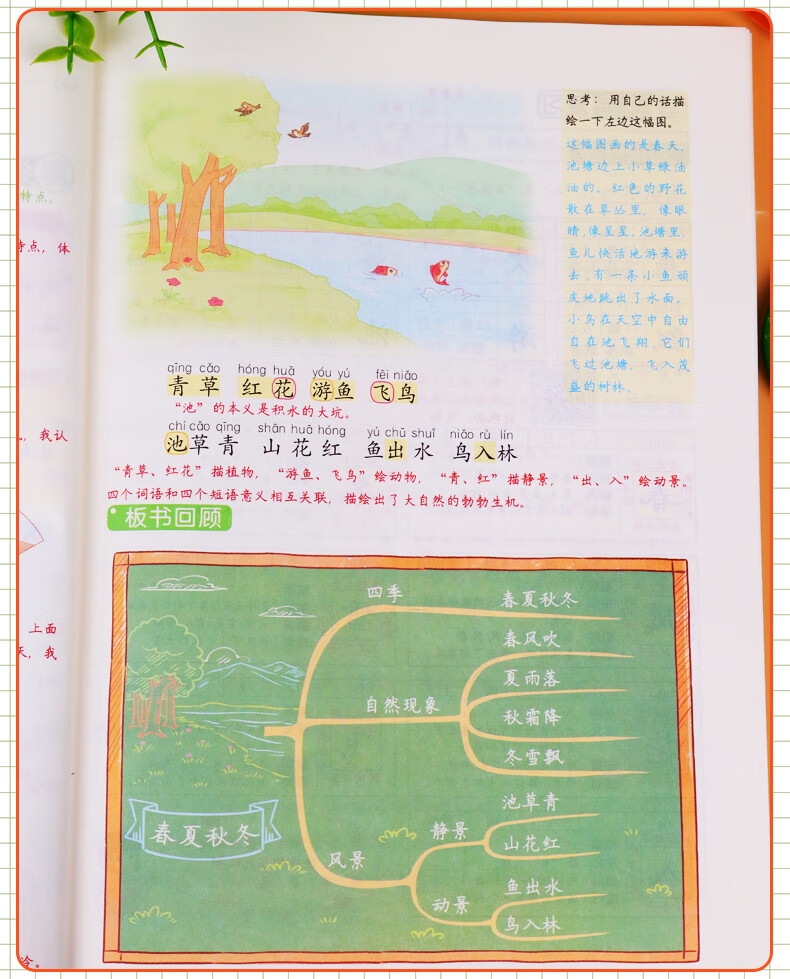 思考：用自己的话描
绘一下左边这幅图。
这幅图画的是春天。
池塘边上小草绿油
油的。红色的野花
散在草丛里，像眼
睛，像星星。池塘里，
鱼儿快活地游来游
去，有一条小鱼顽
皮地跳出了水面。
小鸟在天空中自由
自在地飞翔，它们
飞过池塘，飞入茂
盛的树林。
特点。
特点，体
qīng cǎo hóng huā yóu yú fēi niǎo
青草 红花 游鱼 飞鸟
“池”的本义是积水的大坑。
chí cǎo qīng shān huā hóng yú chū shuǐ niǎo rù lín
池草青 山花红 鱼出水 鸟入林
，我认
“青草、红花”描植物，“游鱼、飞鸟”绘动物，“青、红”描静景，“出、入”绘动景。
四个词语和四个短语意义相互关联，描绘出了大自然的勃勃生机。
板书回顾
上面
天，我
四季
春夏秋冬
自然现象
春风吹
夏雨落
秋霜降
冬雪飘
春夏秋冬
风景
静景
池草青
山花红
动景
鱼出水
鸟入林